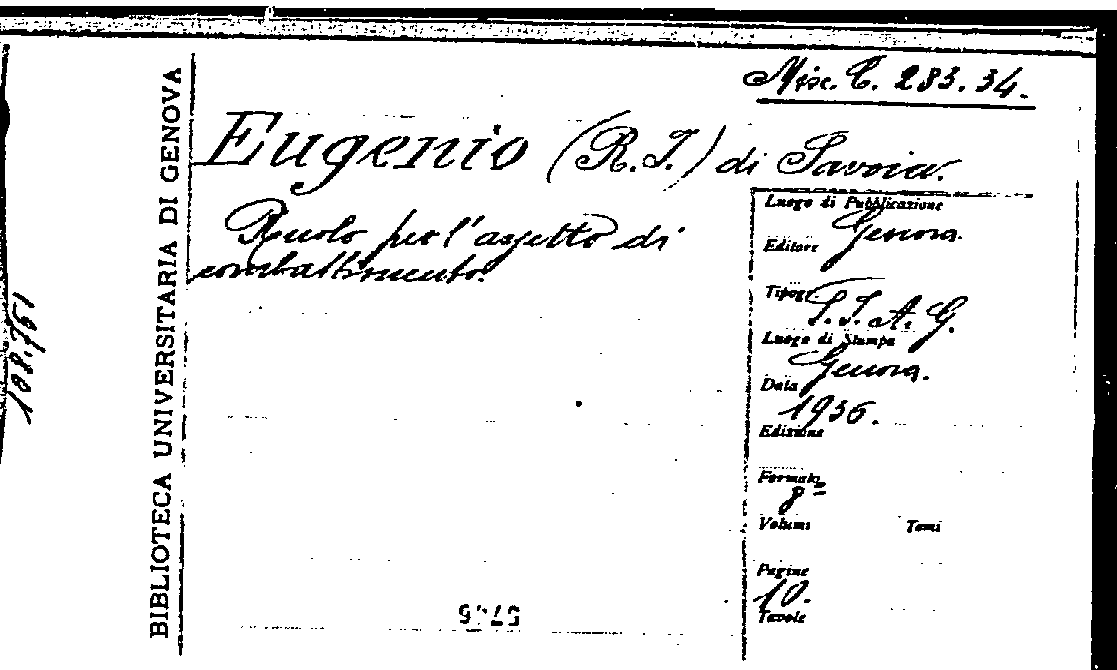 Misc. C. 283.34.
Eugenio (R. I.) di Savoia.
Ruolo per l'aspetto di
combattimento.
Luogo di Pubblicazione
Genova.
Editore
Tipogr.
S.I.A.G.
Luogo di Stampa
Genova.
Data
1936.
Edizione
Formato
8=
Volumi Tomi
Pagine
10.
Tavole
BIBLIOTECA UNIVERSITARIA DI GENOVA
108.761